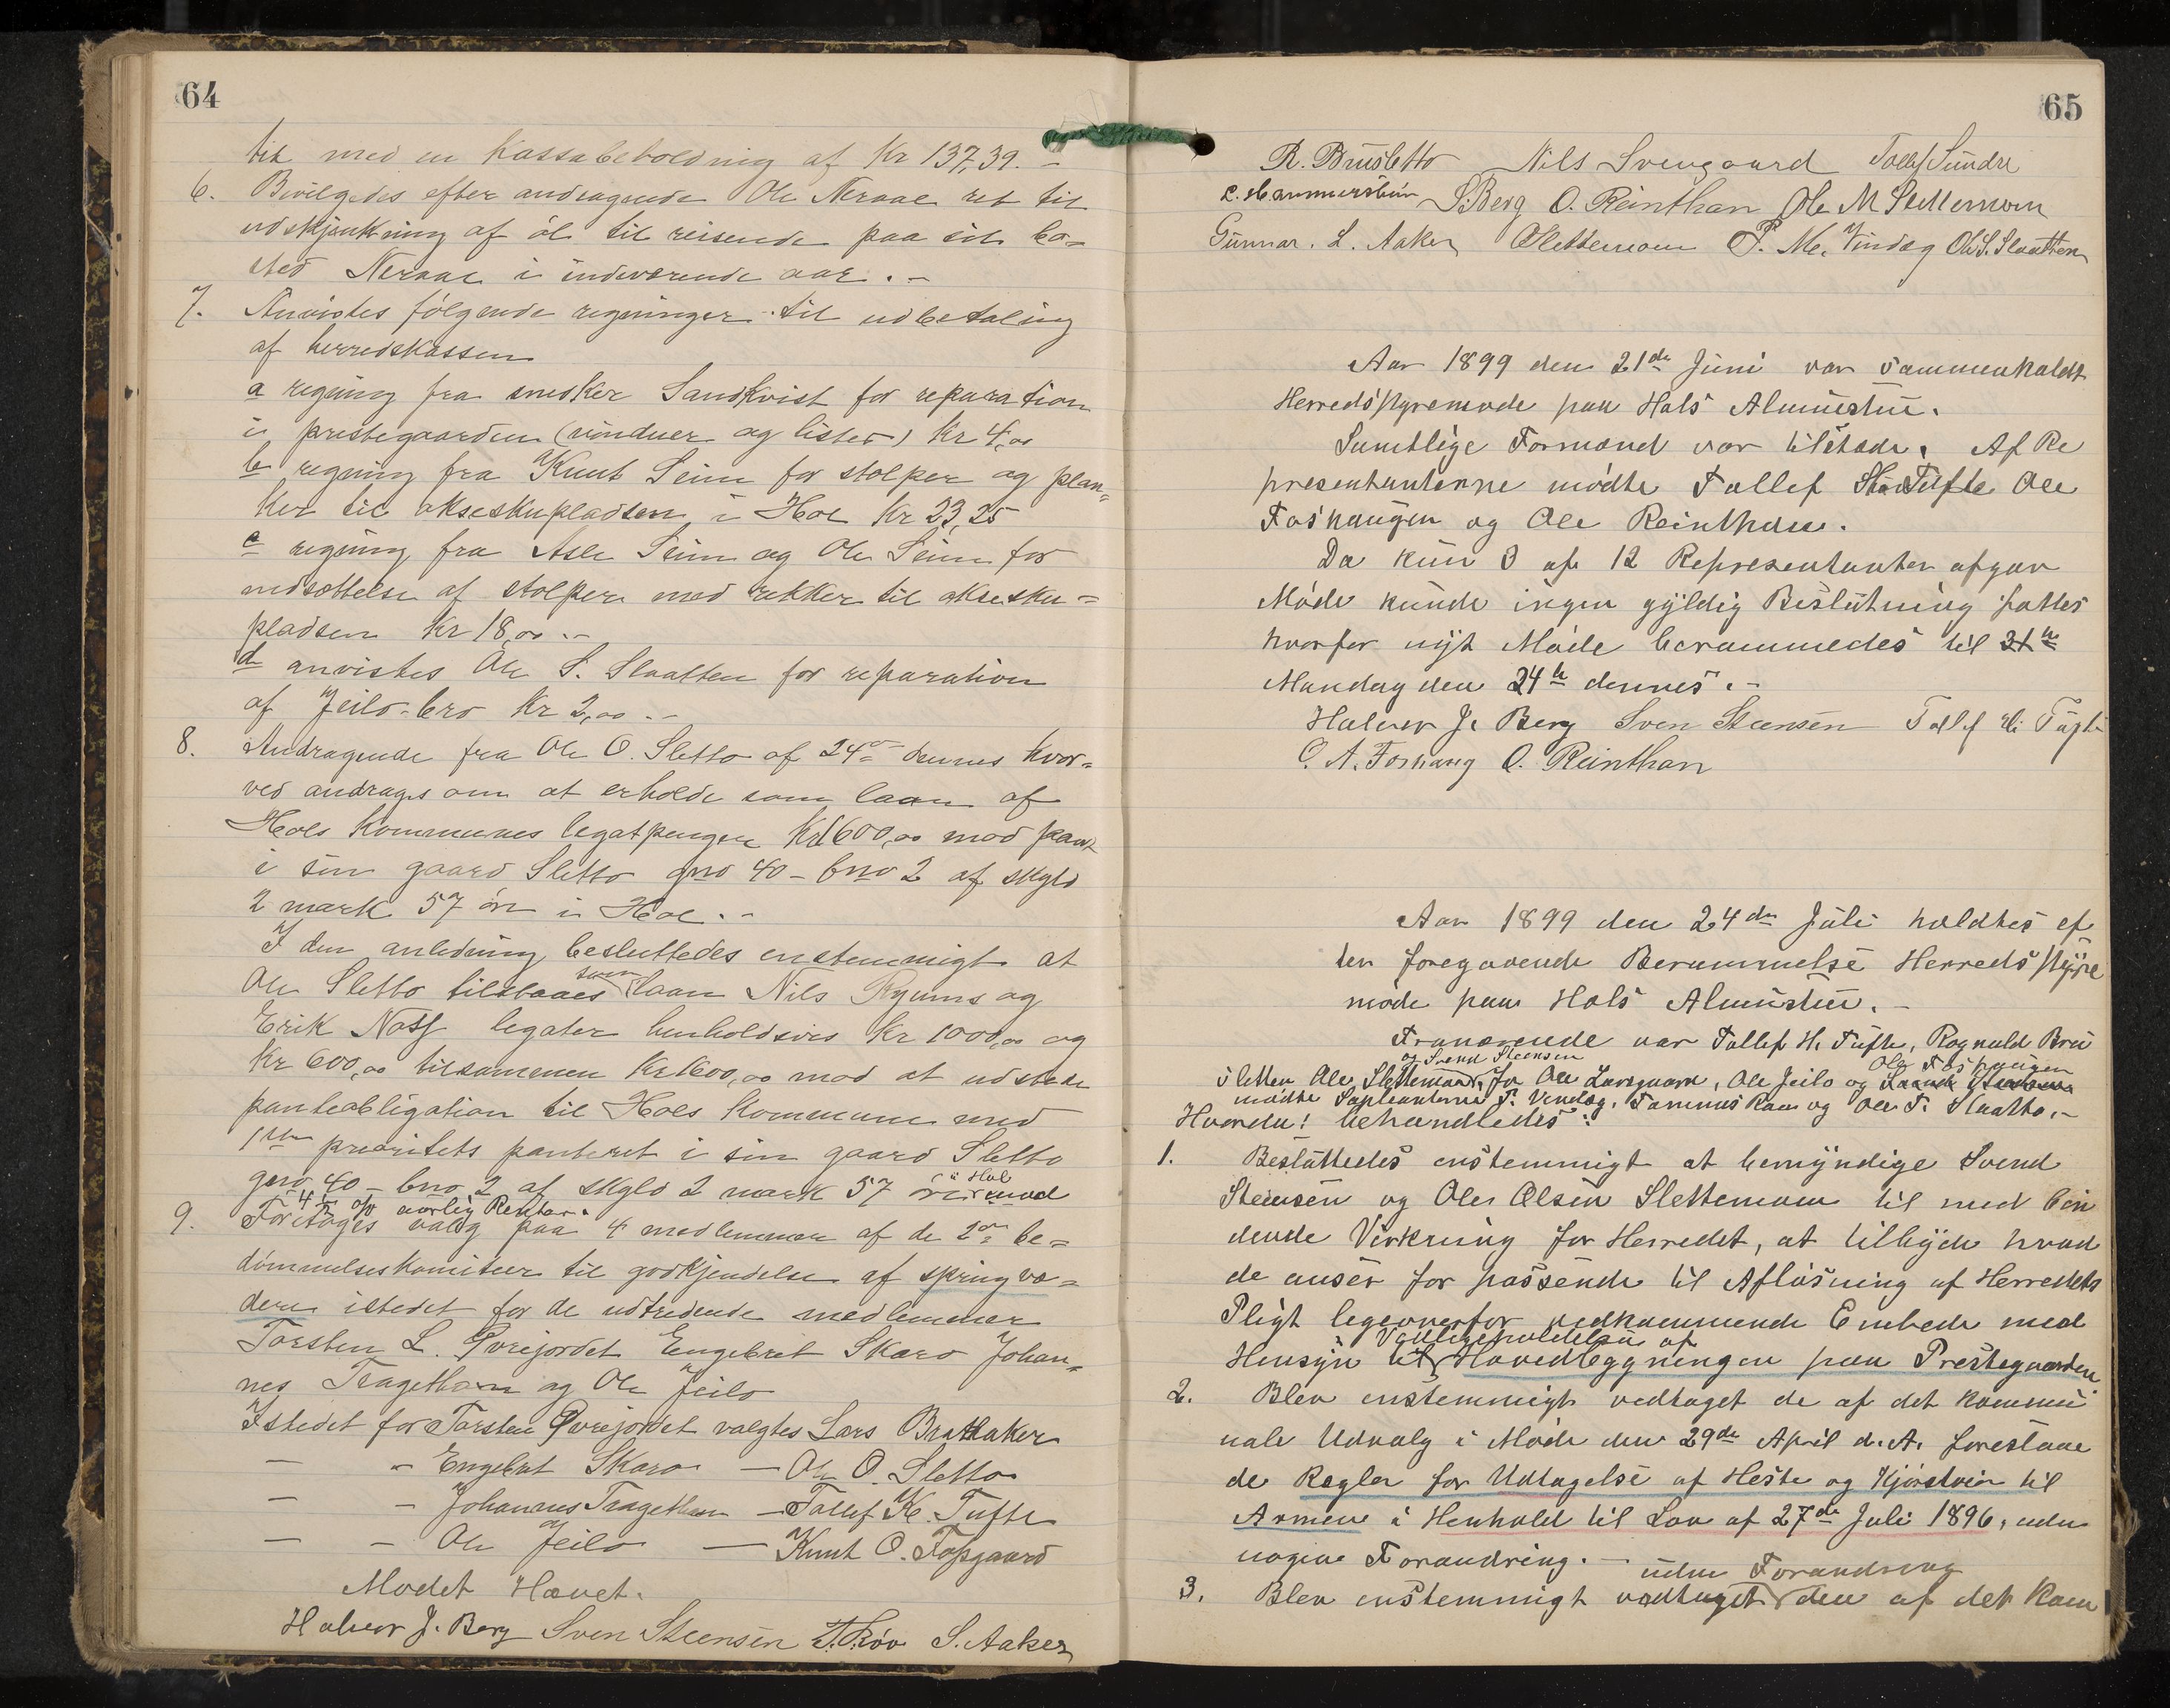 64
til med en Kassabeholdning af Kr 137,39. –
6. Bevilgedes efter andragende Ole Neraal ret til
udskjænkning af öl til reisende paa sit bo=
sted Neraal i indeværende aar. –
7. Anvistes fölgende regninger til udbetaling
af herredskassen
a regning fra snedker Sandkvist for reparation
i prestegaarden (vinduer og lister) Kr 4,00
b regning fra Knut Seim for stolper og plan=
ker til akseskupladsen i Hol Kr 23,25
c regning fra Asle Seim og Ole Seim for
nedsættelse af stolper med rekker til aksesku=
pladsen Kr 18,00 . –
d anvistes Ole S. Slaatten for reparation
af Jeilo-bro Kr 2,00 . –
8. Andragende fra Ole O. Sletto af 24de dennes hvor=
ved andrages om at erholde som laan af
Hols Kommunes legatpenger Kr 1600,00 mod pant
i sin gaard Sletto gno 40 – bno 2 af skyld
2 mark 57 öre i Hol. –
I den anledning besluttedes enstemmigt at
Ole Sletto tilstaaes som laan Nils Ryums og
Erik Næss legater henholdsvis Kr 1000,00 og
Kr 600,00 tilsammen Kr 1600,00 mod at udstede
panteobligation til Hols Kommune med
1ste prioritets panteret i sin gaard Sletto
gno 40 – bno 2 af skyld 2 mark 57 öre i Hol mod
4 ½ % aarlig Renter.
9. Foretoges valg paa 4 medlemmer af de 2de be=
dömmelseskomiteer til godkjendelse af springvæ=
dere istedet for de udtredende medlemmer
Torsten L. Qvejordet Engebret Skaro Johan=
nes Tragethon og Ole Jeilo
Istedet for Torsten Qvejordet valgtes Lars Brattaker
– – Engebret Skaro – Ole O. Sletto
– – Johannes Tragethon – Tollef K. Tufte
– – Ole Jeilo – Knut O. Fossgaard
Mödet Hævet.
Halvor J. Berg Sven Steensen T. Röv S. Aaker
65
R. Brusletto Nils Svengaard Tollef Sundre
L. Hammersbøen S. Berg O. Reinthan Ole M Slettemoen
Gunnar. L. Aaker OSlettemoen P. Me. Vindeg Ole S. Slaatten
Aar 1899 den 21de Juni var sammenkaldt
Herredsstyremøde paa Hols Almustue.
Samtlige Formænd var tilstæde. Af Re
presentanterne mødte Tollef H. Tufte Ole
Foshaugen og Ole Reinthan.
Da kun 3 af 12 Representanter afgav
Møde kunde ingen gyldig Beslutning fattes
hvorfor nyt Møde berammedes til 21de
Mandag den 24de dennes. –
Halvor J. Berg Sven Steensen Tollef H. Tufte
O. A. Foshaug O. Reinthan
Aar 1899 den 24de Juli holdtes ef
ter foregaaende Berammelse Herredsstyre
møde paa Hols Almustue. –
Fraværende var Tollef H. Tufte, Ragnvald Bru
og Svend Steensen Ole Foshaugen
sletten Ole Slettemoen, for Ole Larsgaard, Ole Jeilo og
mødte Supleanterne P. Vindeg, Tommas Raa og Ole T. Slaatto. –
Hvorda! behandledes:
1. Besluttedes enstemmigt at bemyndige Svend
Steensen og Ole Olsen Slettemoen til med bin
dende Virkning for Herredet, at tilbyde hvad
de anser for passende til Afløsning af Herredets
Pligt ligeoverfor vedkommende Embede med
Hensyn til Vedligeholdelse af Hovedbygningen paa Prestegaarden.
2. Blev enstemmigt vedtaget de af det kommu
nale Udvalg i Møde den 29de April d. A. foreslaae
de Regler for Udtagelse af Heste og Kjøretøier til
Armeen i Henhold til Lov af 27de Juli 1896, uden
nogen Forandring. –
3. Blev enstemmigt vedtaget uden Forandring den af det Kom